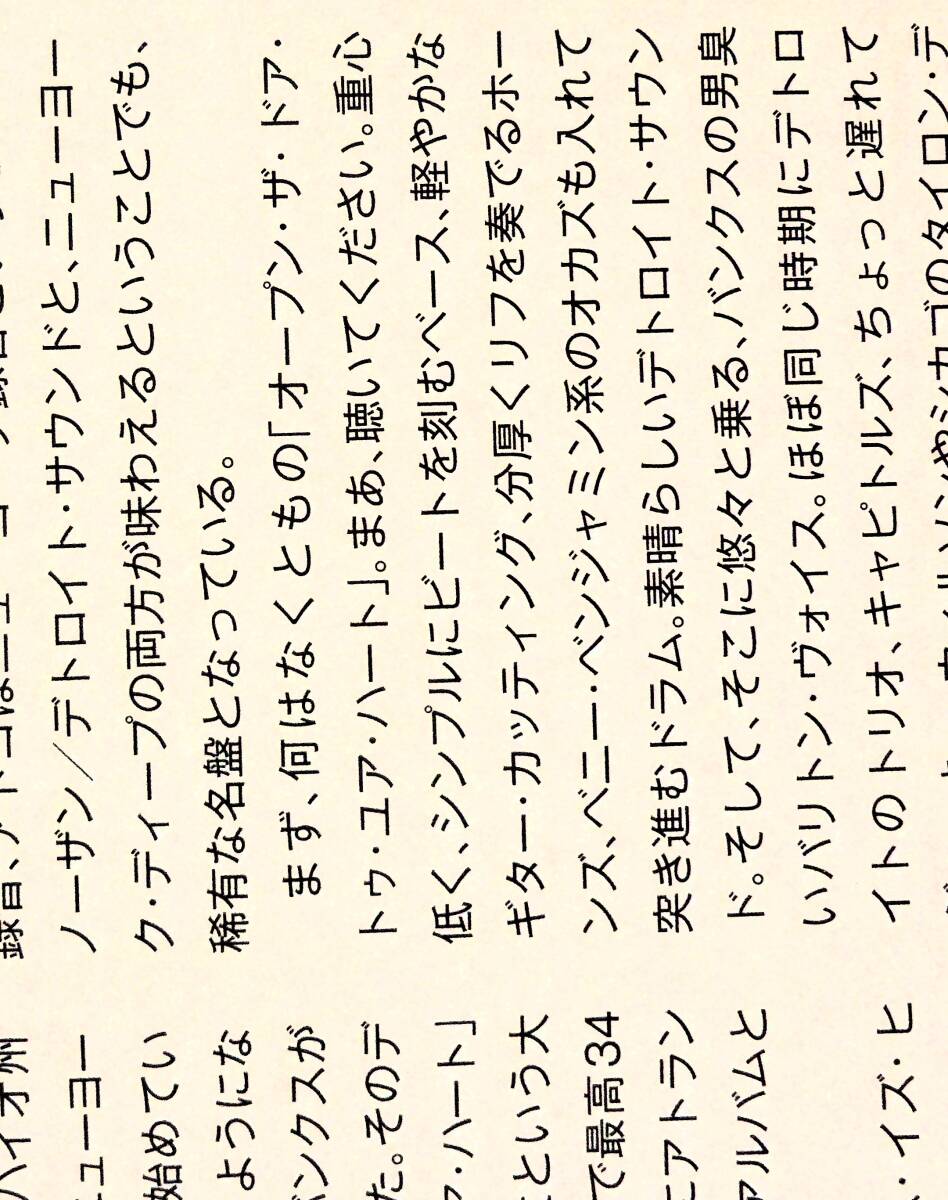 ハイオ州
ューヨー
始めてい
ようにな
ンクスが
た。そのデ
ア・ハート」
という大
で最高34
アトラン
アルバムと
・イズ・ヒ
録音、
ノーザン／デトロイト・サウンドと、ニューヨー
ク・ディープの両方が味わえるということでも、
稀有な名盤となっている。
まず、何はなくともの「オープン・ザ・ドア・
トゥ・ユア・ハート」。まあ、聴いてください。重心
低く、シンプルにビートを刻むベース、軽やかな
ギター・カッティング、分厚くリフを奏でるホー
ンズ、ベニー・ベンジャミン系のオカズも入れて
突き進むドラム。素晴らしいデトロイト・サウン
ド。そして、そこに悠々と乗る、バンクスの男臭
いバリトン・ヴォイス。ほぼ同じ時期にデトロ
イトのトリオ、キャピトルズ、ちょっと遅れて
ソンやシカゴのタイロン・デ